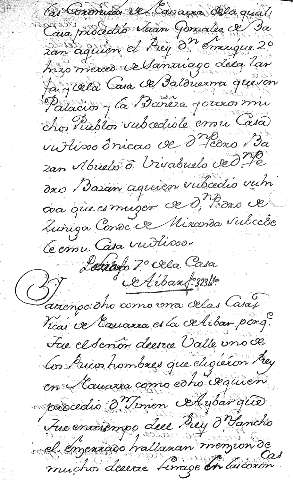 las Coronicas de Nauarra de la qual
Casa procedio Juan Gonzales de Ba
zan a quien el Rey Dn enrrique 2o
hizo merced de Santiago de la
y de la Casa de Balduerna que son
Palacios y la Bañeza y otros mu
chos Pueblos subcediole en su Casa
su hixo vnico de Dn Pedro Ba
zan Abuelo o Visabuelo de Dn Pe
dro Bazan a quien subcedio su hi
xa que es muger de Dn Pedro de
Zuñiga Conde de Miranda subcede
le en su Casa su hixo
7o de la Casa
de Aibar
Ya tengo dho como vna de las Casas
Ricas de Nauarra es la de Aibar, porq.
fue el señor de este Valle vno de
los Ricos hombres que eligieron Rey
en Nauarra como es dho de quien
procedio Dn Ximen de Aybar que
fue en tiempo del Rey Dn Sancho
el encerrado hallaran mencion de
muchos de este linage en las coron
cas